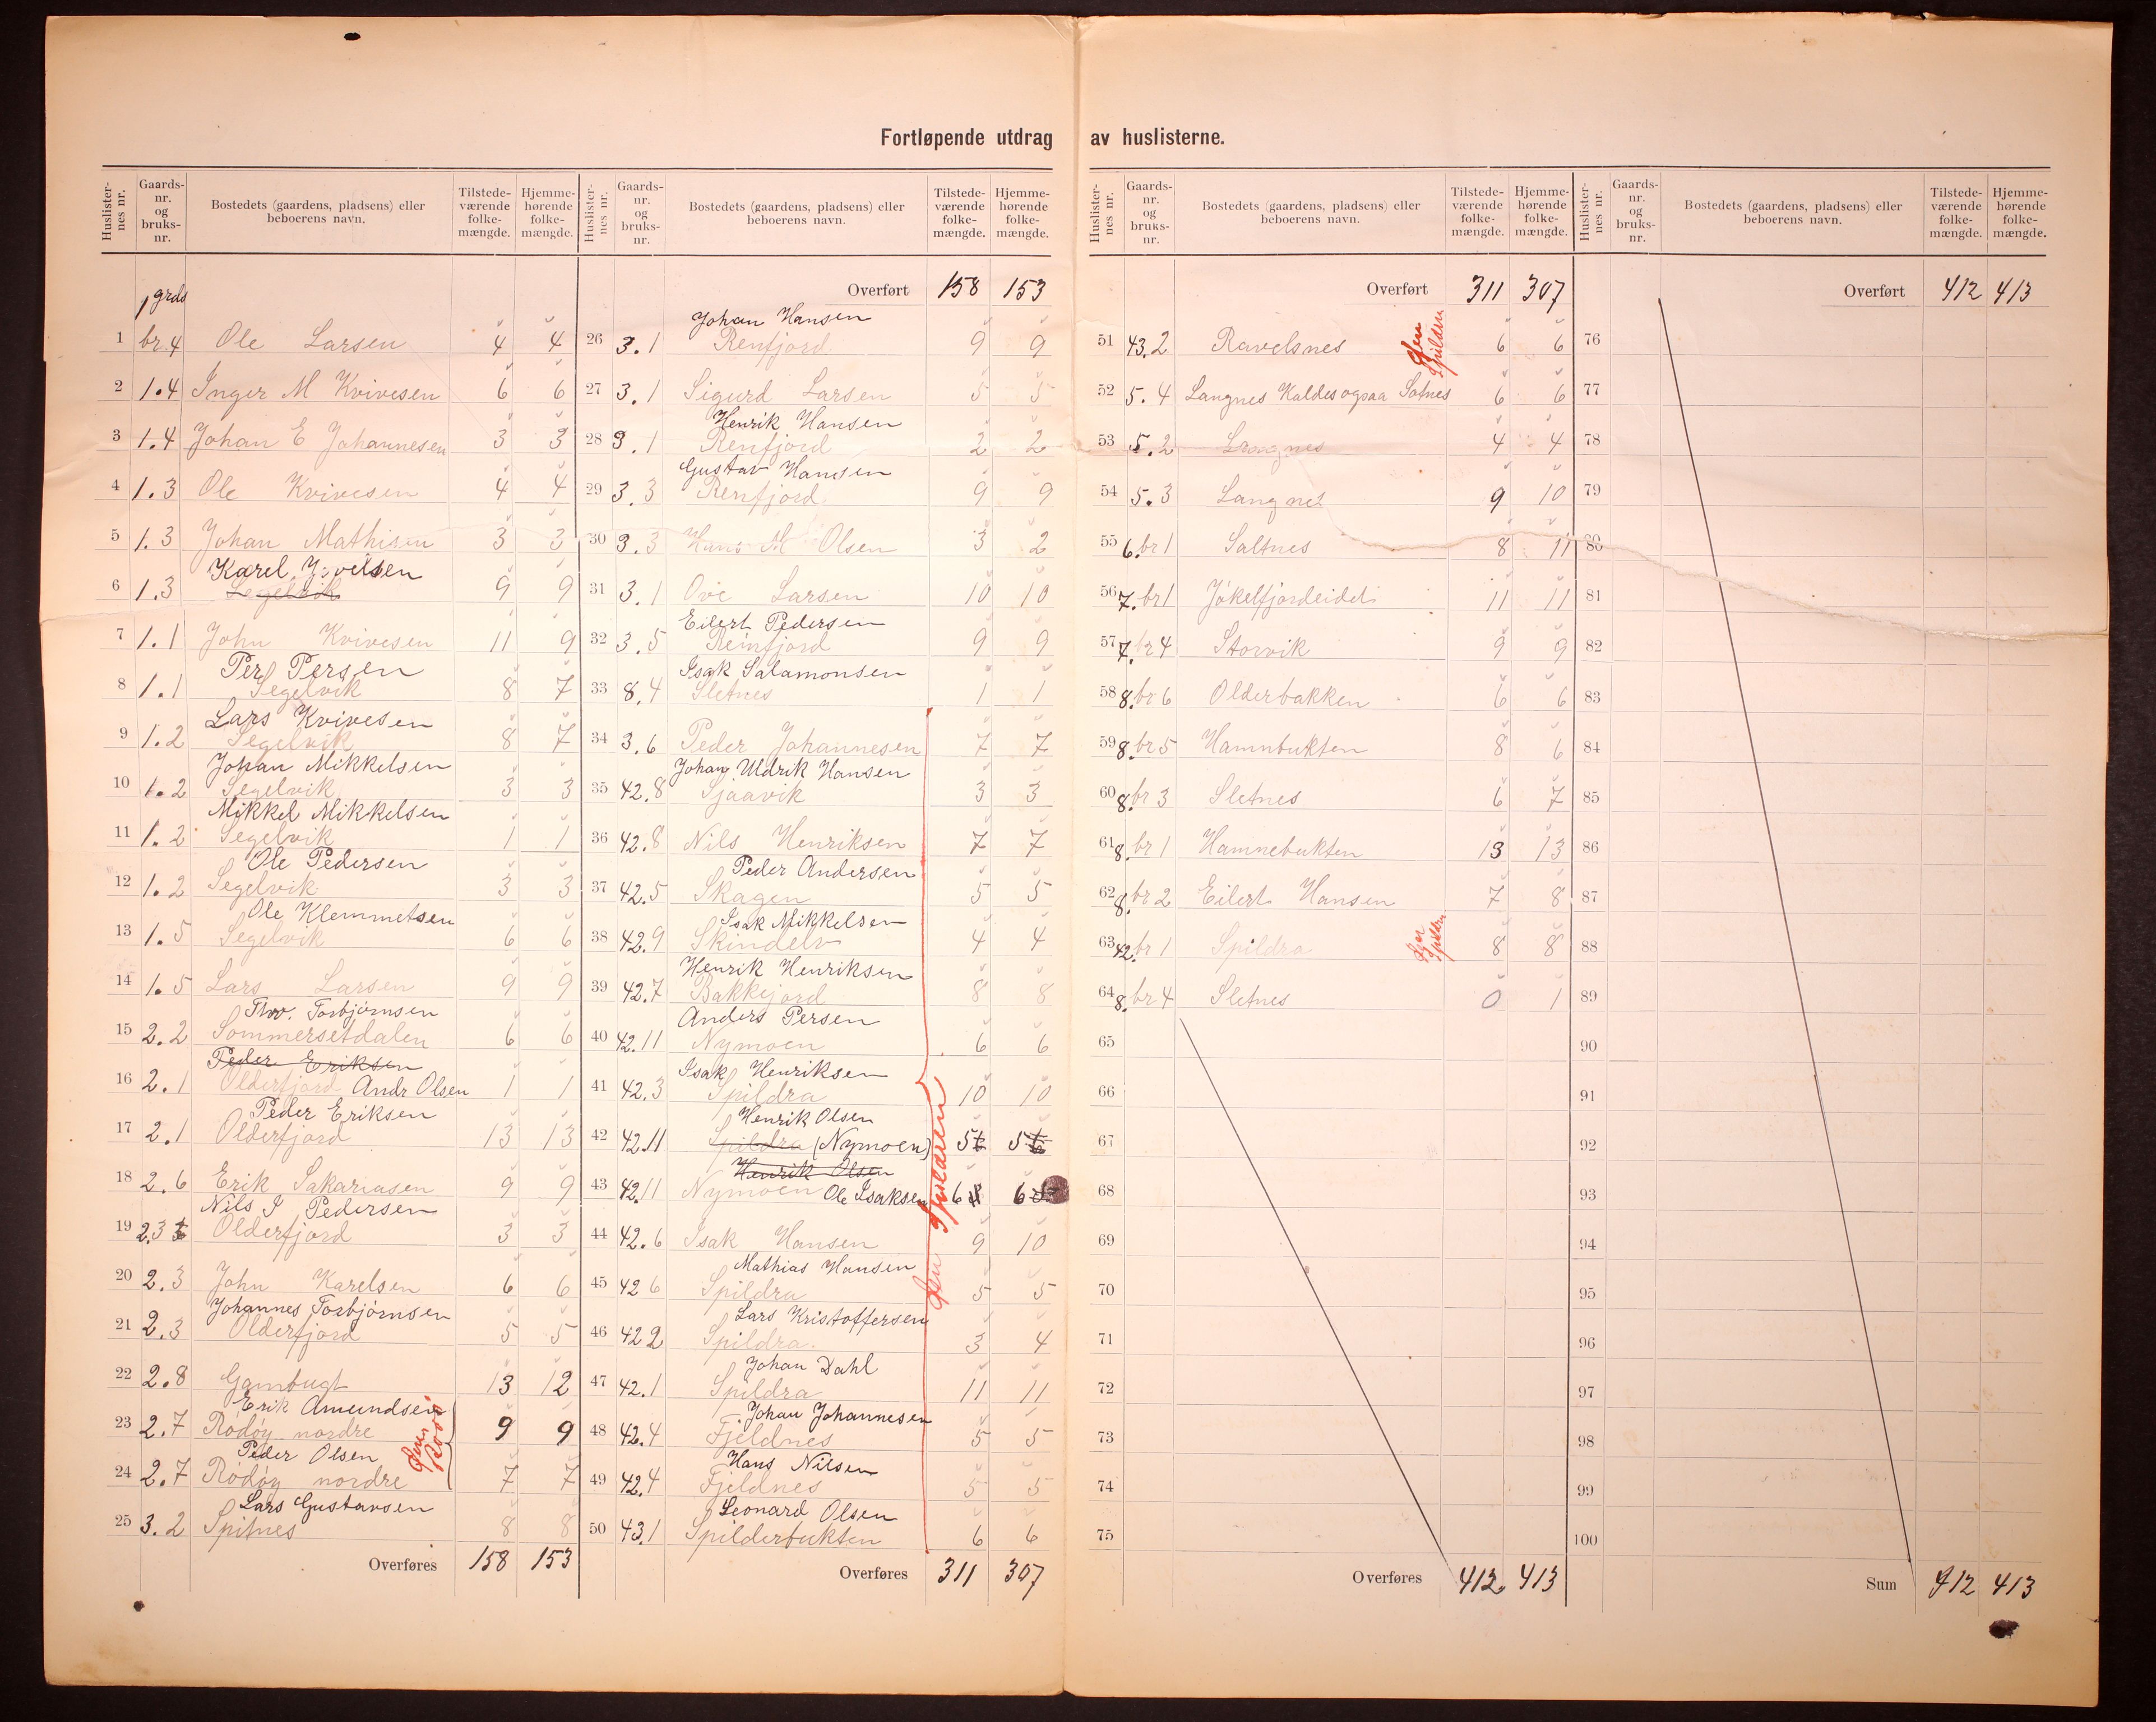 Fortløpende utdrag av huslisterne.
Huslisternes nr. Gaards- nr. og bruks- nr. Bostedets (gaardens, pladsens) eller beboerens navn. Tilstede- værende folke- mængde. Hjemme- hørende folke- mængde.
1 grds
1 br.4 Ole Larsen 4 4
2 1.4 Inger M Kvivesen 6 6
3 1.4 Johan E Johannesen 3 3
4 1.3 Ole Kvivesen 4 4
5 1.3 Johan Mathisen 3 3
Karel
6 1.3 Segelvik 9 9
7 1.1 John Kvivesen 11 9
Per Persen
8 1.1 Segelvik 8 7
Lars Kvivesen
9 1.2 Segelvik 8 7
Johan Mikkelsen
10 1.2 Segelvik 3 3
Mikkel Mikkelsen
11 1.2 Segelvik 1 1
Ole Pedersen
12 1.2 Segelvik 3 3
Ole Klemmetsen
13 1.5 Segelvik 6 6
14 1.5 Lars Larsen 9 9
Thor. Torbjørnsen
15 2.2 Sommersetdalen 6 6
Peder Eriksen
16 2.1 Olderfjord Andr Olsen 1 1
Peder Eriksen
17 2.1 Olderfjord 13 13
18 2.6 Erik Sakariasen 9 9
Nils J Pedersen
19 2.3 Olderfjord 3 3
20 2.3 John Karelsen 6 6
Johannes Torbjørnsen
21 2.3 Olderfjord 5 5
22 2.8 Gambugt 13 12
Erik Amundsen
23 2.7 Rødøy nordre 9 9
Peder Olsen
24 2.7 Rødøy nordre 7 7
Lars Gustavsen
25 3.2 Spitnes 8 8
Overføres 158 153
Huslisternes nr. Gaards- nr. og bruks- nr. Bostedets (gaardens, pladsens) eller beboerens navn. Tilstede- værende folke- mængde. Hjemme- hørende folke- mængde.
Overført 158 153
Johan Hansen
26 3.1 Renfjord 9 9
27 3.1 Sigurd Larsen 5 5
Henrik Hansen
28 3.1 Renfjord 2 2
Gustav Hansen
29 3.3 Renfjord 9 9
30 3.3 Hans M Olsen 3 2
31 3.1 Ove Larsen 10 10
Eilert Pedersen
32 3.5 Reinfjord 9 9
Isak Salamonsen
33 8.4 Sletnes 1 1
34 3.6 Peder Johannesen 7 7
Johan Uldrik Hansen
35 42.8 Sjaavik 3 3
36 42.8 Nils Henriksen 7 7
Peder Andersen
37 42.5 Skagen 5 5
Isak Mikkelsen
38 42.9 Skindelv 4 4
Henrik Henriksen
39 42.7 Bakkejord 8 8
Anders Persen
40 42.11 Nymoen 6 6
Isak Henriksen
41 42.3 Spildra 10 10
Henrik Olsen
42 42.11 Spildra (Nymoen) 5 5
Henrik Olsen
43 42.11 Nymoen Ole Isaksen 6 6
44 42.6 Isak Hansen 9 10
Mathias Hansen
45 42 6 Spildra 5 5
Lars Kristoffersen
46 42 2 Spildra 3 4
Johan Dahl
47 42.1 Spildra 11 11
Johan Johannesen
48 42.4 Fjeldnes 5 5
Hans Nilsen
49 42.4 Fjeldnes 5 5
Leonard Olsen
50 43.1 Spilderbukten 6 6
Overføres 311 307
Huslisternes nr. Gaards- nr. og bruks- nr. Bostedets (gaardens, pladsens) eller beboerens navn. Tilstede- værende folke- mængde. Hjemme- hørende folke- mængde.
Overført 311 307
51 43.2 Ravelsnes 6 6
52 5.4 Langnes Kaldes ogsaa Satnes 6 6
53 5.2 Langnes 4 4
54 5.3 Langnes 9 10
55 6.br 1 Saltnes 8 11
56 7.br 1 Jökelfjordeidet 11 11
57 7.br 4 Storvik 9 9
58 8.br 6 Olderbakken 6 6
59 8.br 5 Hamnbukten 8 6
60 8.br 3 Sletnes 6 7
61 8.br 1 Hamnebukten 13 13
62 8.br 2 Eilert Hansen 7 8
63 42.br 1 Spildra 8 8
64 8.br 4 Sletnes 0 1
65
66
67
68
69
70
71
72
73
74
75
Overføres 412 413
Huslisternes nr. Gaards- nr. og bruks- nr. Bostedets (gaardens, pladsens) eller beboerens navn. Tilstede- værende folke- mængde. Hjemme- hørende folke- mængde.
Overført 412 413
76
77
78
79
80
81
82
83
84
85
86
87
88
89
90
91
92
93
94
95
96
97
98
99
100
Sum 412 413